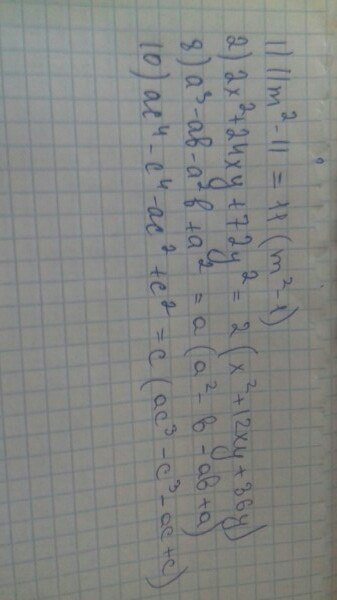 1) 11m² - 11 = 11 (m² - 1)
2) 2x² + 24xy + 72y² = 2 (x² + 12xy + 36y)
8) a³ - ab - a²b + a² = a (a² - b - ab + a)
10) ac⁴ - c⁴ - ac² + c² = c (ac³ - c³ - ac + c)